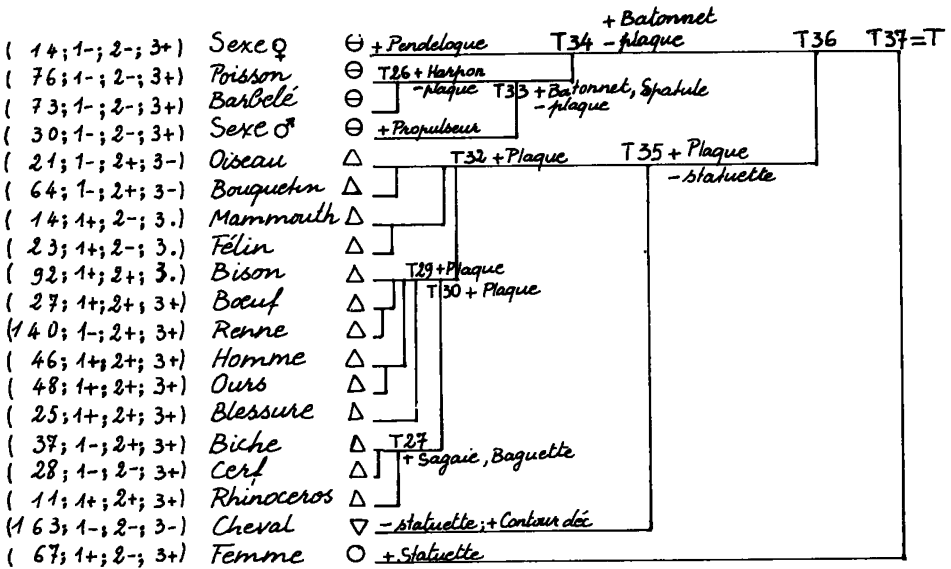 + Batonnet
( 14; 1-; 2-; 3+) Sexe ♀ ⊖ + Pendeloque T34 - plaque T36 T37=T
( 76; 1-; 2-; 3+) Poisson ⊖ T26 + Harpon
- plaque T33 + Batonnet, Spatule
( 73; 1-; 2-; 3+) Barbelé ⊖ - plaque
( 30; 1-; 2-; 3+) Sexe ♂ ⊖ + Propulseur
( 21; 1-; 2+; 3-) Oiseau △ T32 + Plaque T35 + Plaque
- statuette
( 64; 1-; 2+; 3-) Bouquetin △
( 14; 1+; 2-; 3.) Mammouth △
( 23; 1+; 2-; 3.) Félin △
( 92; 1+; 2+; 3.) Bison △ T29 + Plaque
T30 + Plaque
( 27; 1+; 2+; 3+) Bœuf △
(140; 1-; 2+; 3+) Renne △
( 46; 1+; 2+; 3+) Homme △
( 48; 1+; 2+; 3+) Ours △
( 25; 1+; 2+; 3+) Blessure △
( 37; 1-; 2+; 3+) Biche △ T27
+ Sagaie, Baguette
( 28; 1-; 2-; 3+) Cerf △
( 11; 1+; 2+; 3+) Rhinoceros △
(163; 1-; 2-; 3-) Cheval ▽ - statuette; + Contour déc
( 67; 1+; 2-; 3+) Femme ○ + Statuette